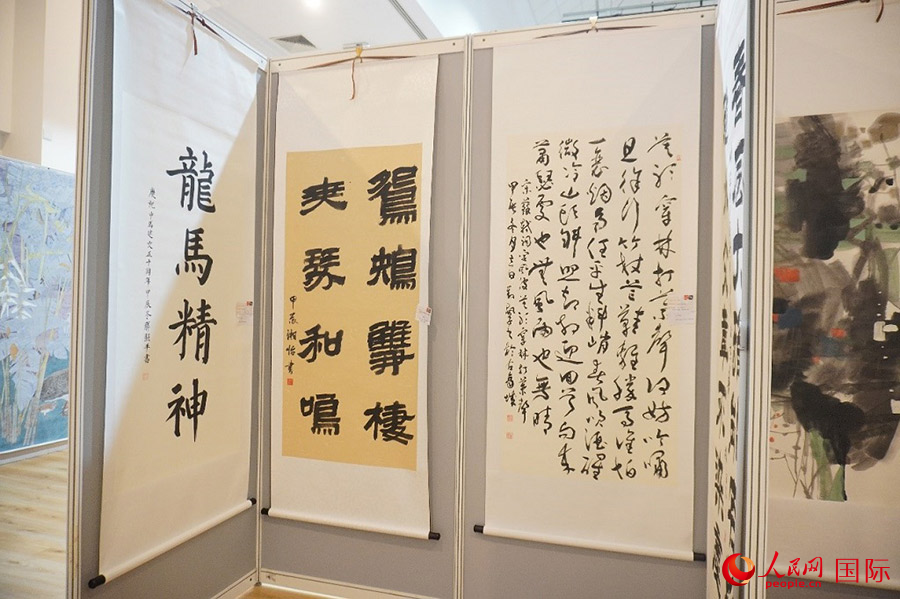 龍馬精神
慶祝中馬建交五十周年甲辰冬
鴛鴦雙棲
琴和鳴
甲辰
書
莫聽穿林打葉聲何妨吟嘯
且徐行竹杖芒鞋輕勝馬誰怕
一蓑烟雨任平生料峭春風吹酒醒
微冷山頭斜照却相迎回首向來
蕭瑟處也無風雨也無晴
宋蘇軾詞定風波莫聽穿林打葉聲
甲辰冬月
人民网 国际
people.cn